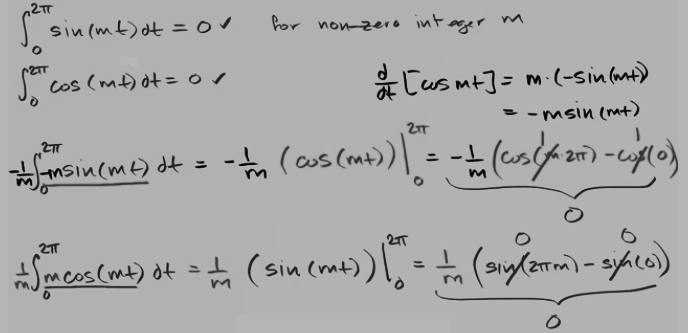 ∫₀^{2π} sin(mt) dt = 0 ✓ for non-zero integer m
∫₀^{2π} cos(mt) dt = 0 ✓
d/dt [cos mt] = m·(-sin(mt))
= -m sin(mt)
-1/m ∫₀^{2π} -m sin(mt) dt = -1/m (cos(mt))|₀^{2π} = -1/m (cos(m·2π) - cos(0))
1 1
0
1/m ∫₀^{2π} m cos(mt) dt = 1/m (sin(mt))|₀^{2π} = 1/m (sin(2πm) - sin(0))
0 0
0